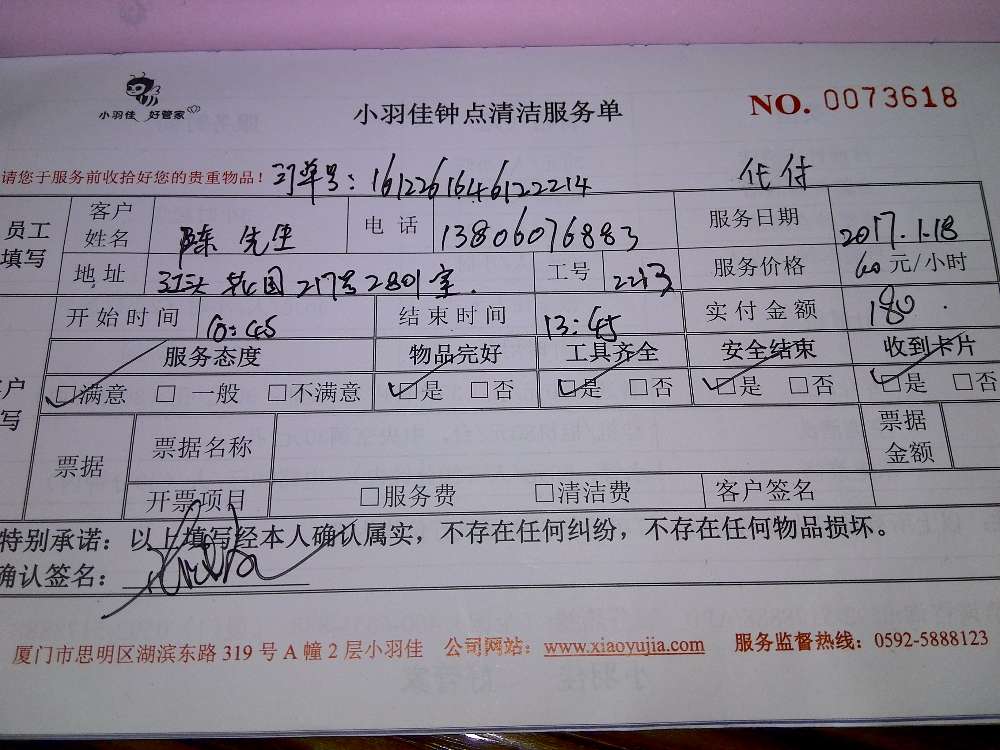 小羽佳 好管家
小羽佳钟点清洁服务单
NO. 0073618
请您于服务前收拾好您的贵重物品！ 订单号：1612261646122214 代付
员工填写 客户姓名 陈先生 电话 13806076883 服务日期 2017.1.18
地址 217号2801室. 工号 2213 服务价格 60元/小时
开始时间 10:45 结束时间 13:45 实付金额 180.
服务态度 物品完好 工具齐全 安全结束 收到卡片
户写 □满意 □一般 □不满意 □是 □否 □是 □否 □是 □否 □是 □否
票据 票据名称 票据金额
开票项目 □服务费 □清洁费 客户签名
特别承诺：以上填写经本人确认属实，不存在任何纠纷，不存在任何物品损坏。
确认签名：
厦门市思明区湖滨东路 319 号 A 幢 2 层小羽佳 公司网站：www.xiaoyujia.com 服务监督热线：0592-5888123